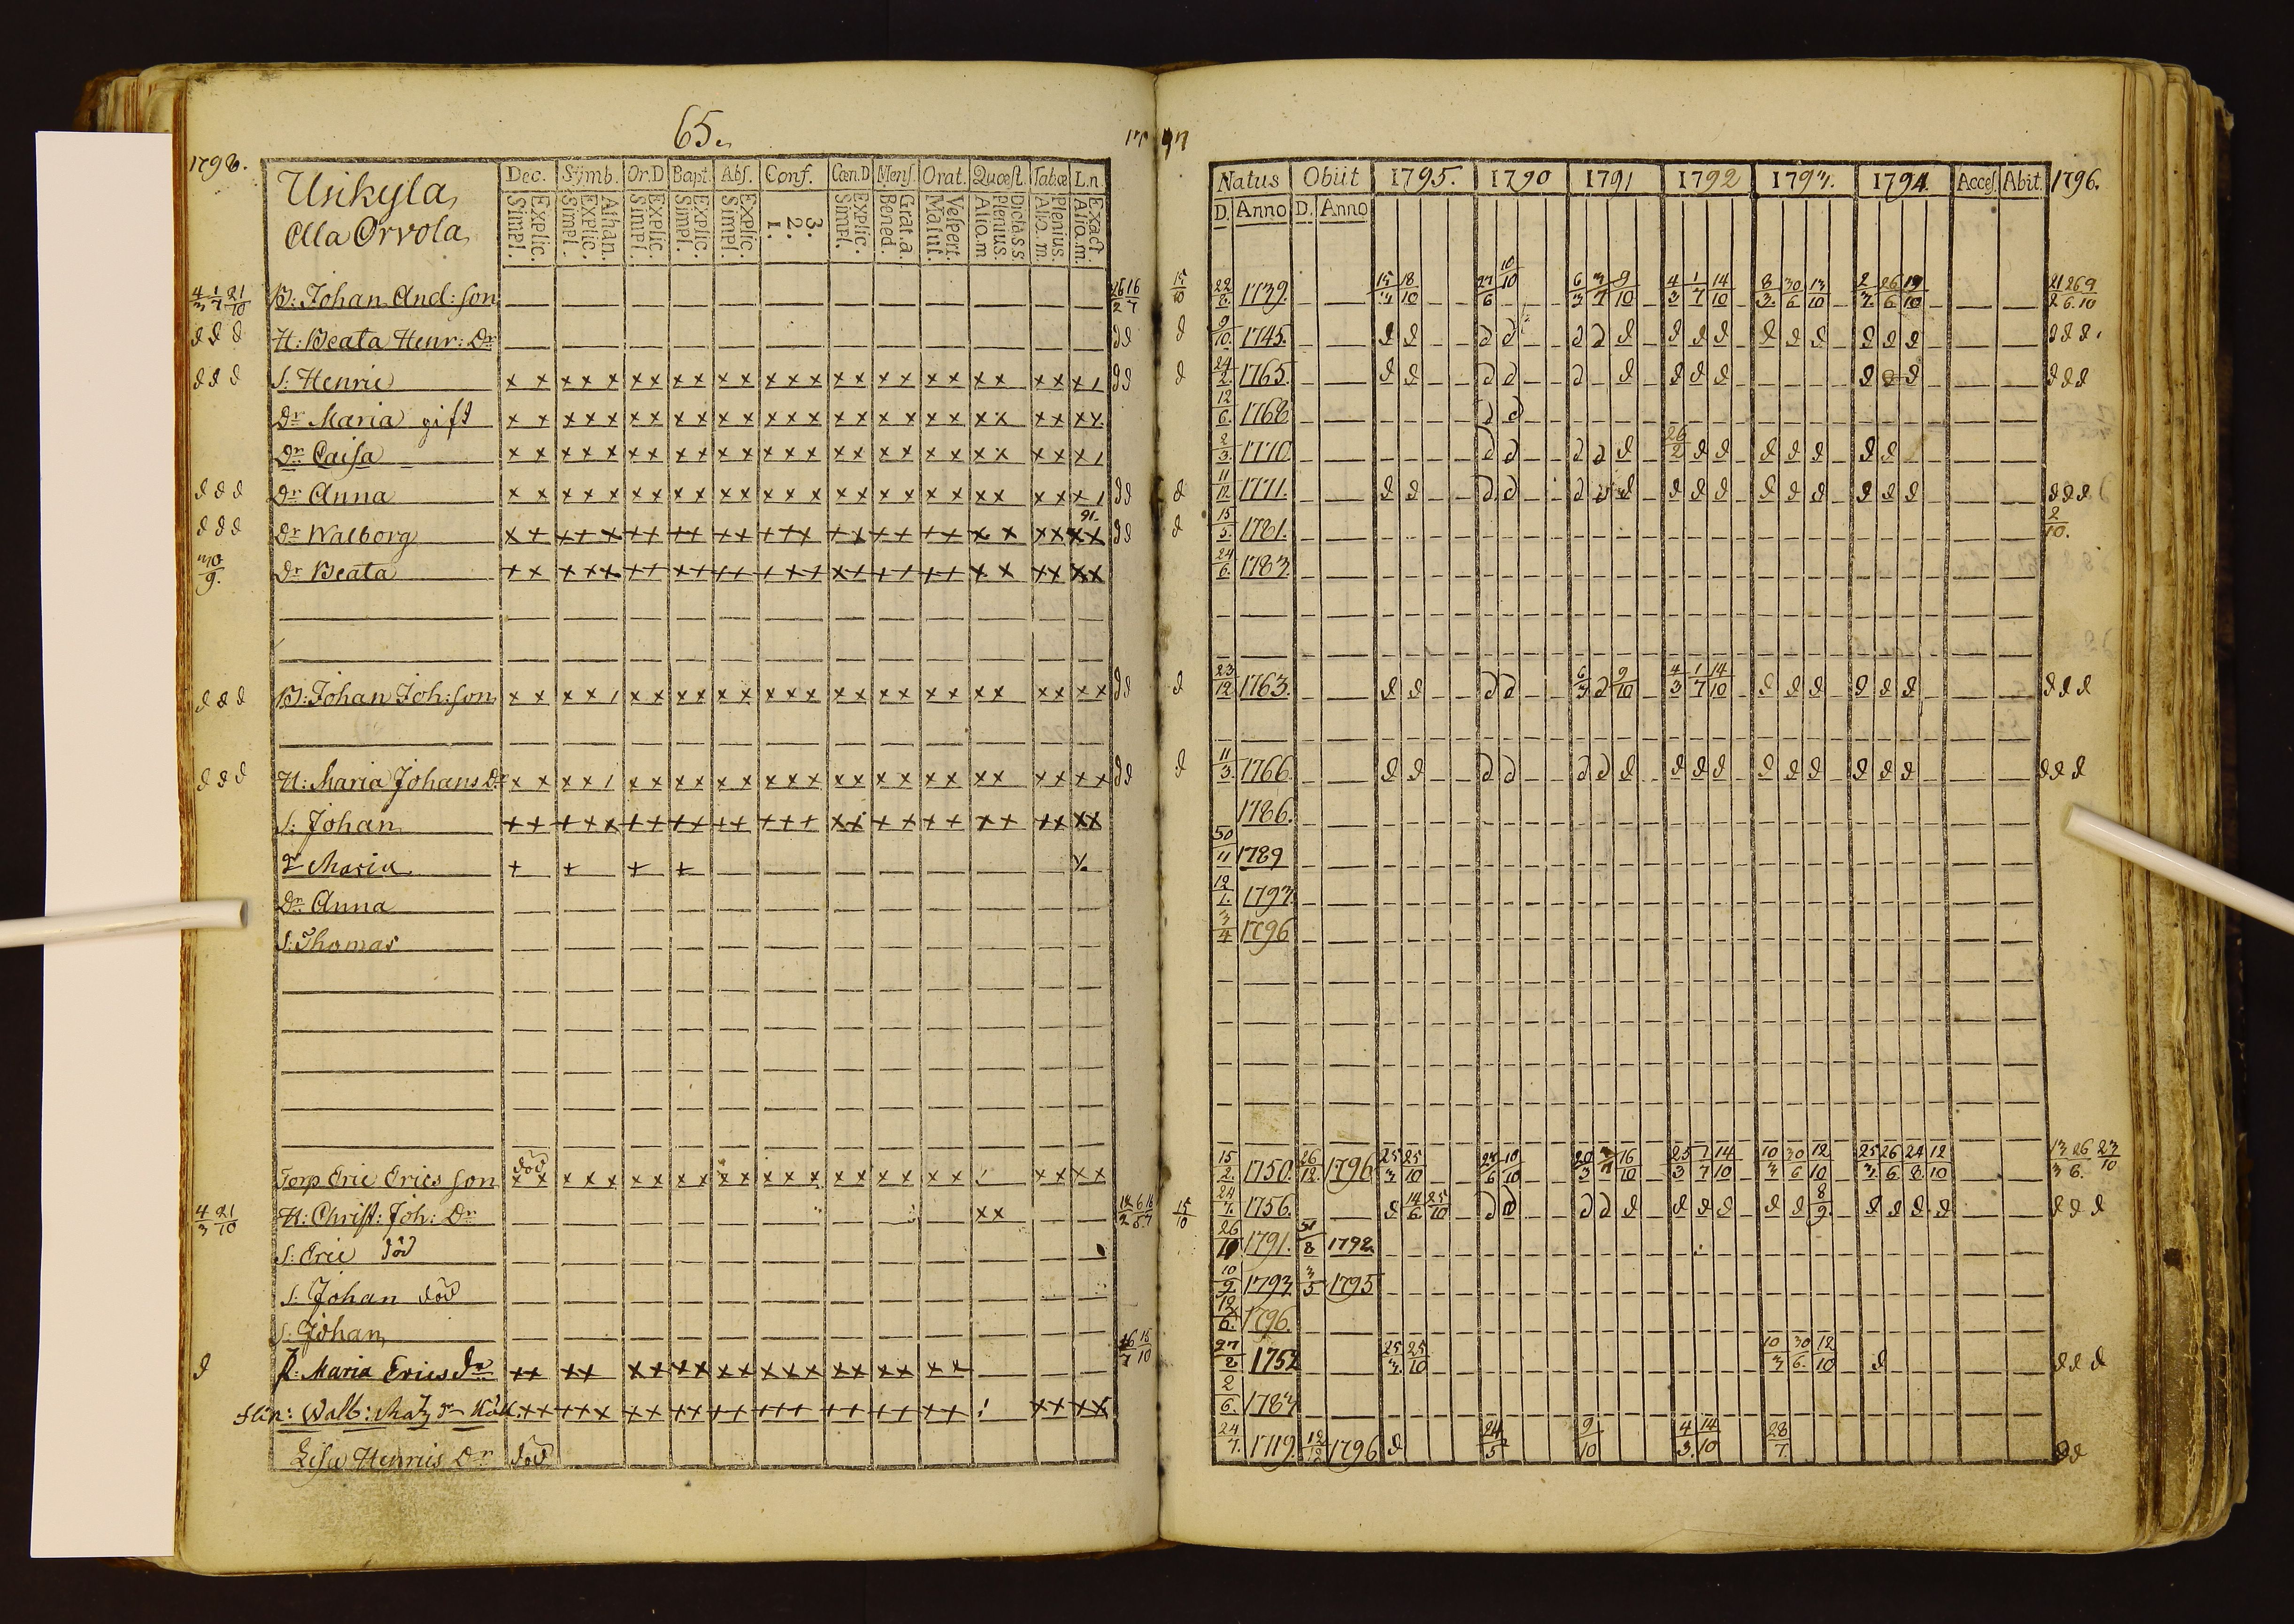 65.
1798.
17 97
Usikyla,
Alla Orvola,
Dec. Symb. Or.D Bapt. Abs. Conf. Cœn.D Mens. Orat. Quœst. Tabœ L.n.
Explic. Simpl. Athan. Explic. Simpl. Explic. Simpl. Explic. Simpl. Explic. Simpl. 3. 2. 1. Explic. Simpl. Grat.a. Bened. Vespert. Matut. Dict.a s.s. Plenius. Aliq.m Plenius. Aliq.m. Exact. Aliq.m.
Natus Obiit 1795. 1790 1791 1792 1793. 1794. Acces. Abit. 1796.
D. Anno D. Anno
4/3 1/7 21/10 B: Johan And:son 26/2 16/7 15/10 22/2. 1739. 15/3 18/10 27/6 10/10 6/3 3/7 9/10 4/3 1/7 14/10 8/3. 30/6 13/10 2/3. 26/6. 19/10 21/2 26/6 9/10
d d d H: Beata Henr: Dr d d d 9/10. 1745. d d d d d d d d d d d d d d d d d d d
d d d S: Henric x x x x x x x x x x x x x x x x x x x x x x x x x 1 d d d 24/2. 1765. d d d d d d d d d d d d d d d
Dr Maria gift x x x x x x x x x x x x x x x x x x x x x x x x x x 12/6. 1768 d d
Dr Caisa x x x x x x x x x x x x x x x x x x x x x x x x x 1 2/3. 1770 d d d d d 26/2 d d d d d d d
d d d Dr Anna x x x x x x x x x x x x x x x x x x x x x x x x x 1 d d d 11/12 1771. d d d d d d d d d d d d d d d d d d d
d d d Dr Walborg x x x x x x x x x x x x x x x x x x x x x x x x x x 91. d d d 15/5. 1781. 2/10.
Dr Beata x x x x x x x x x x x x x x x x x x x x x x x x x x 24/6. 1783.
d d d B: Johan Joh:son x x x x 1 x x x x x x x x x x x x x x x x x x x x x d d d 23/12 1763. d d d d 6/3 d 9/10 4/3 1/7 14/10 d d d d d d d d d
d d d H: Maria Johans Dr x x x x 1 x x x x x x x x x x x x x x x x x x x x x d d d 11/3. 1766. d d d d d d d d d d d d d d d d d d d
S: Johan x x x x x x x x x x x x x x x x x x x x x x x x x x 1786.
Dr Maria + + + + 30/11 1789
Dr Anna 12/1. 1793.
S: Thomas 3/4 1796
Torp Eric Ericsson död x x x x x x x x x x x x x x x x x x x x x x x x x 15/2. 1750. 26/12. 1796 25/3 25/10 10/10 20/3 16/10 25/3 1/7 14/10 10/3 30/6 12/10 25/3. 26/6. 24/8. 12/10 13/3 26/6. 23/10
4/3 21/10 H: Christ: Joh: Dr x x 15/10 24/7. 1756. d 14/6. 25/10 d d d d d d d d d d 8/9. d d d d d d d
S: Eric död 26/10 1791. 8 1792.
S: Johan död 10/9. 1793 3/5 1795
S: Johan 12/6. 1796.
d P: Maria Erics dr x x x x x x x x x x x x x x x x x x x x 16/7 15/10 27/2 1752 25/3. 25/10 10/3 30/6. 12/10 d d d d
Walb: Matz dr x x x x x x x x x x x x x x x x x x x x x ! x x x x 2/6. 1783
Lisa Henrics Dr död 24/7. 1719. 12/12 1796 d 24/5 9/10 4/3. 14/10 28/7. d d